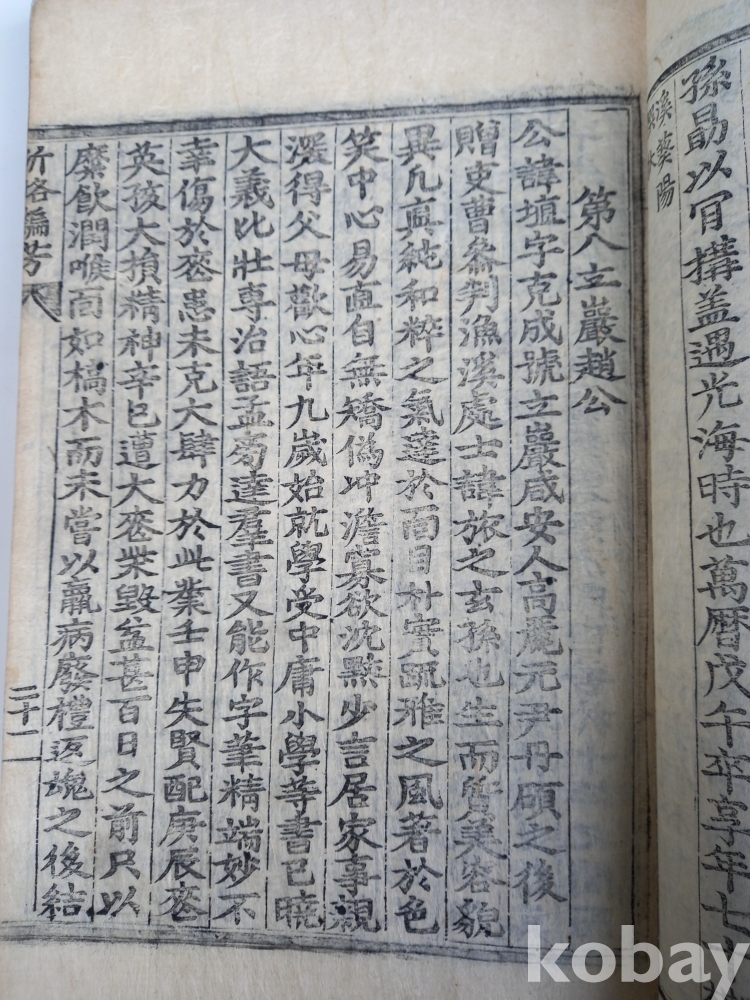 孫勗以冐搆盖遇光海時也萬曆戊午卒享年七
溪蔾陽
第八立巖趙公
公諱埴字克成號立巖咸安人高麗元尹丹碩之後
贈吏曹叅判漁溪處士諱旅之玄孫也生而質美容貌
異凡眞純和粹之氣達於面目朴實踈雅之風著於色
笑中心易直自無矯僞冲澹寡欲沈黙少言居家事親
深得父母歡心年九歲始就學受中庸小學等書已曉
大義比壯專治語孟旁達羣書又能作字筆精端妙不
幸傷於患未克大肆力於此業壬申失賢配庚辰
英孩大損精神辛巳遭大柴毀益甚百日之前只以
糜飮潤喉面如槁木而未嘗以羸病廢禮返魂之後結
二十一